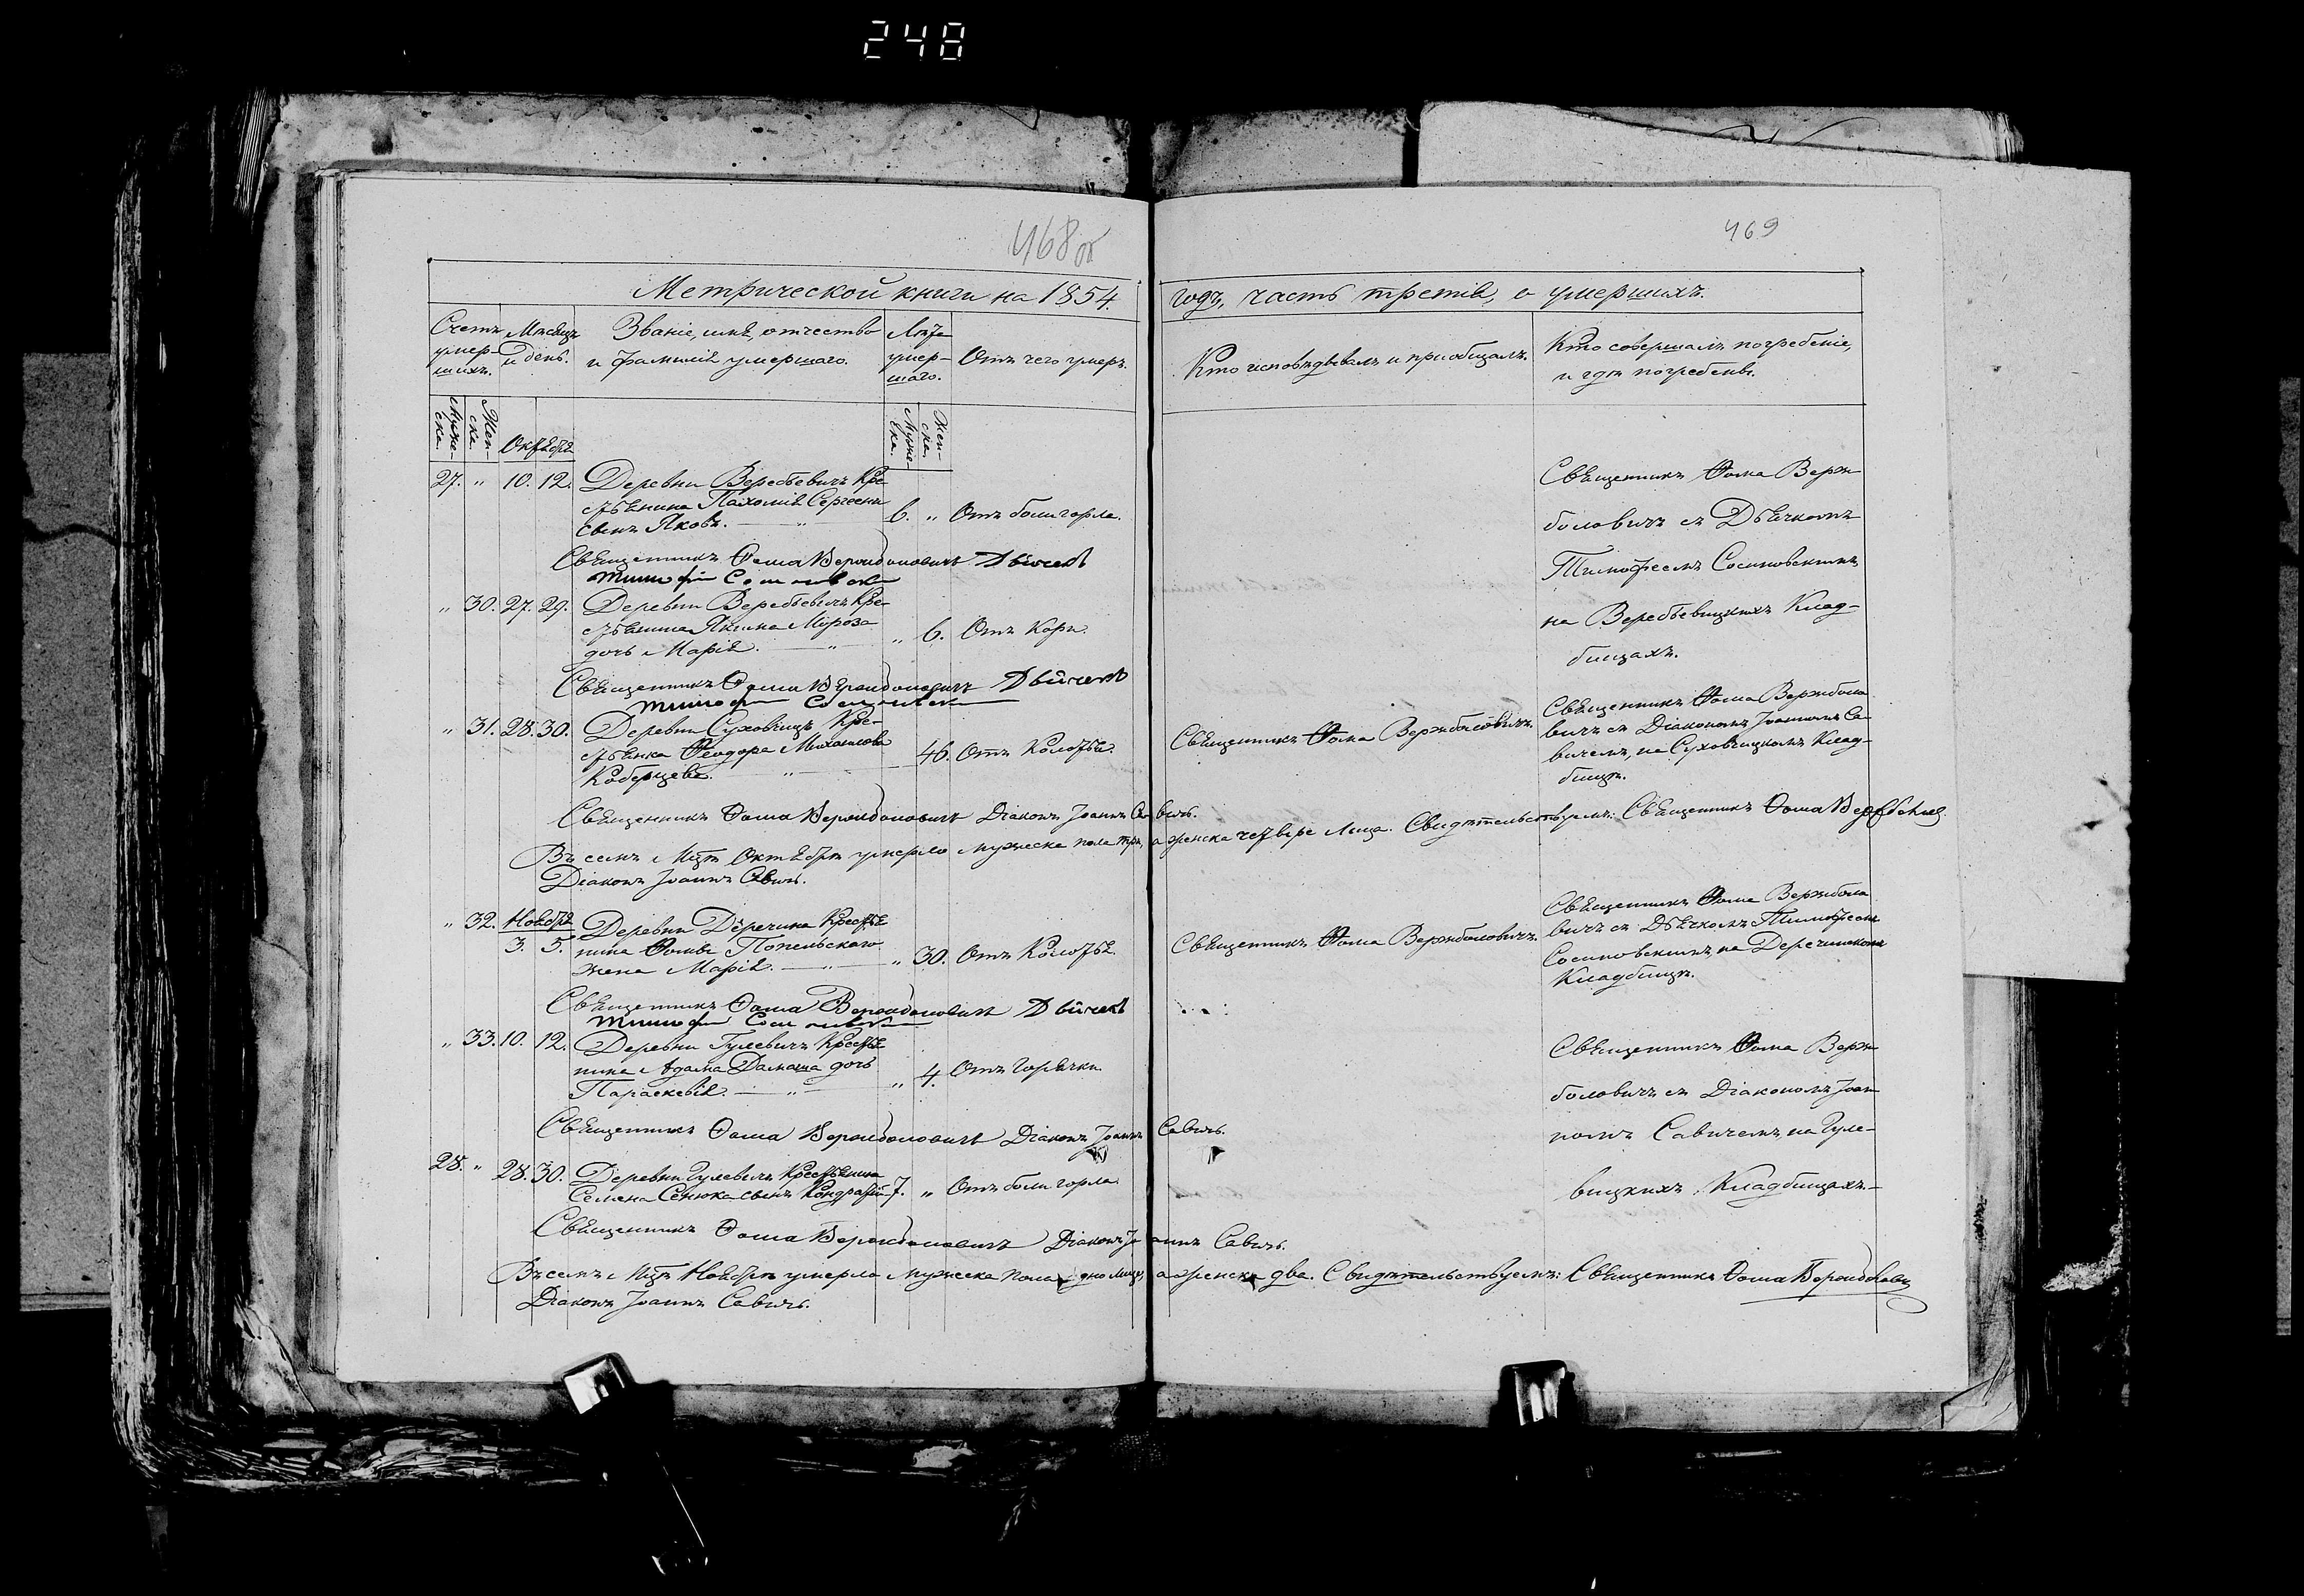 248
468 об
469
Метрической книги на 1854.
годъ, часть третія, о умершихъ.
Счетъ умер-шихъ.
Мѣсяцъ и день.
Званіе, имя, отчество
и фамилія умершаго.
Лѣта умер-шаго.
Отъ чего умеръ.
Кто исповѣдывалъ и пріобщалъ.
Кто совершалъ погребеніе,
и гдѣ погребены.
Муже-ска.
Жен-ска.
Октября
Муже-ска.
Жен-ска.
27. „ 10. 12. Деревни Веребьевичъ Кре-
стьянина Пахомія Сергеен
сынъ Яковъ. — „ 6. „ Отъ боли горла.
Священникъ Ѳома Вержболовичъ Дьячекъ
Тимофей Сосиновскій
Священникъ Ѳома Верж-
боловичъ съ Дьячкомъ
Тимофеемъ Сосиновскимъ
на Веребьевицкихъ Клад-
бищахъ.
„ 30. 27. 29. Деревни Веребьевичъ Кре-
стьянина Якима Мороза
дочь Марія. — „ „ 6. Отъ Кори.
Священникъ Ѳома Вержболовичъ Дьячекъ
Тимофей Сосиновскій
„ 31. 28. 30. Деревни Суховчицъ Кре-
стьянка Ѳеодора Михайлова
Коберцева. — „ 46. Отъ Колотья.
Священникъ Ѳома Вержболовичъ.
Священникъ Ѳома Вержболо
вичъ съ Діакономъ Іоанномъ Са-
вичемъ, на Суховчицкомъ Клад-
бищѣ.
Священникъ Ѳома Вержболовичъ Діаконъ Іоаннъ Савичъ.
Въ семъ Мцѣ Октябрѣ умерло мужеска пола три, а женска четыре Лица. Свидѣтельствуемъ: Священникъ Ѳома
Діаконъ Іоаннъ Савичъ.
„ 32. Ноября
3. 5. Деревни Деречина Крестья
нина Ѳомы Попельского
жена Марія. — „ „ 30. Отъ Колотья.
Священникъ Ѳома Вержболовичъ.
Священникъ Ѳома Вержболо
вичъ съ Дьячкомъ Тимофеемъ
Сосиновскимъ, на Деречинскомъ
Кладбищѣ.
Священникъ Ѳома Вержболовичъ Дьячекъ
Тимофей Сосиновскій
„ 33. 10. 12. Деревни Гулевичъ Крестья
нина Адама Дамаша дочь
Параскевія. — „ „ 4. Отъ Горячки.
Священникъ Ѳома Вержболовичъ Діаконъ Іоаннъ Савичъ.
Священникъ Ѳома Верж
боловичъ съ Діакономъ Іоан
номъ Савичемъ, на Гуле-
вицкихъ Кладбищахъ.
28. „ 28. 30. Деревни Гулевичъ Крестьянина
Семена Сенюка сынъ Кондратій 7. „ Отъ боли горла.
Священникъ Ѳома Вержболовичъ Діаконъ Іоаннъ Савичъ.
Въ семъ Мцѣ Ноябрѣ умерло мужеска пола одно Лице, а женска два. Свидѣтельствуемъ: Священникъ Ѳома Вержболовичъ
Діаконъ Іоаннъ Савичъ.